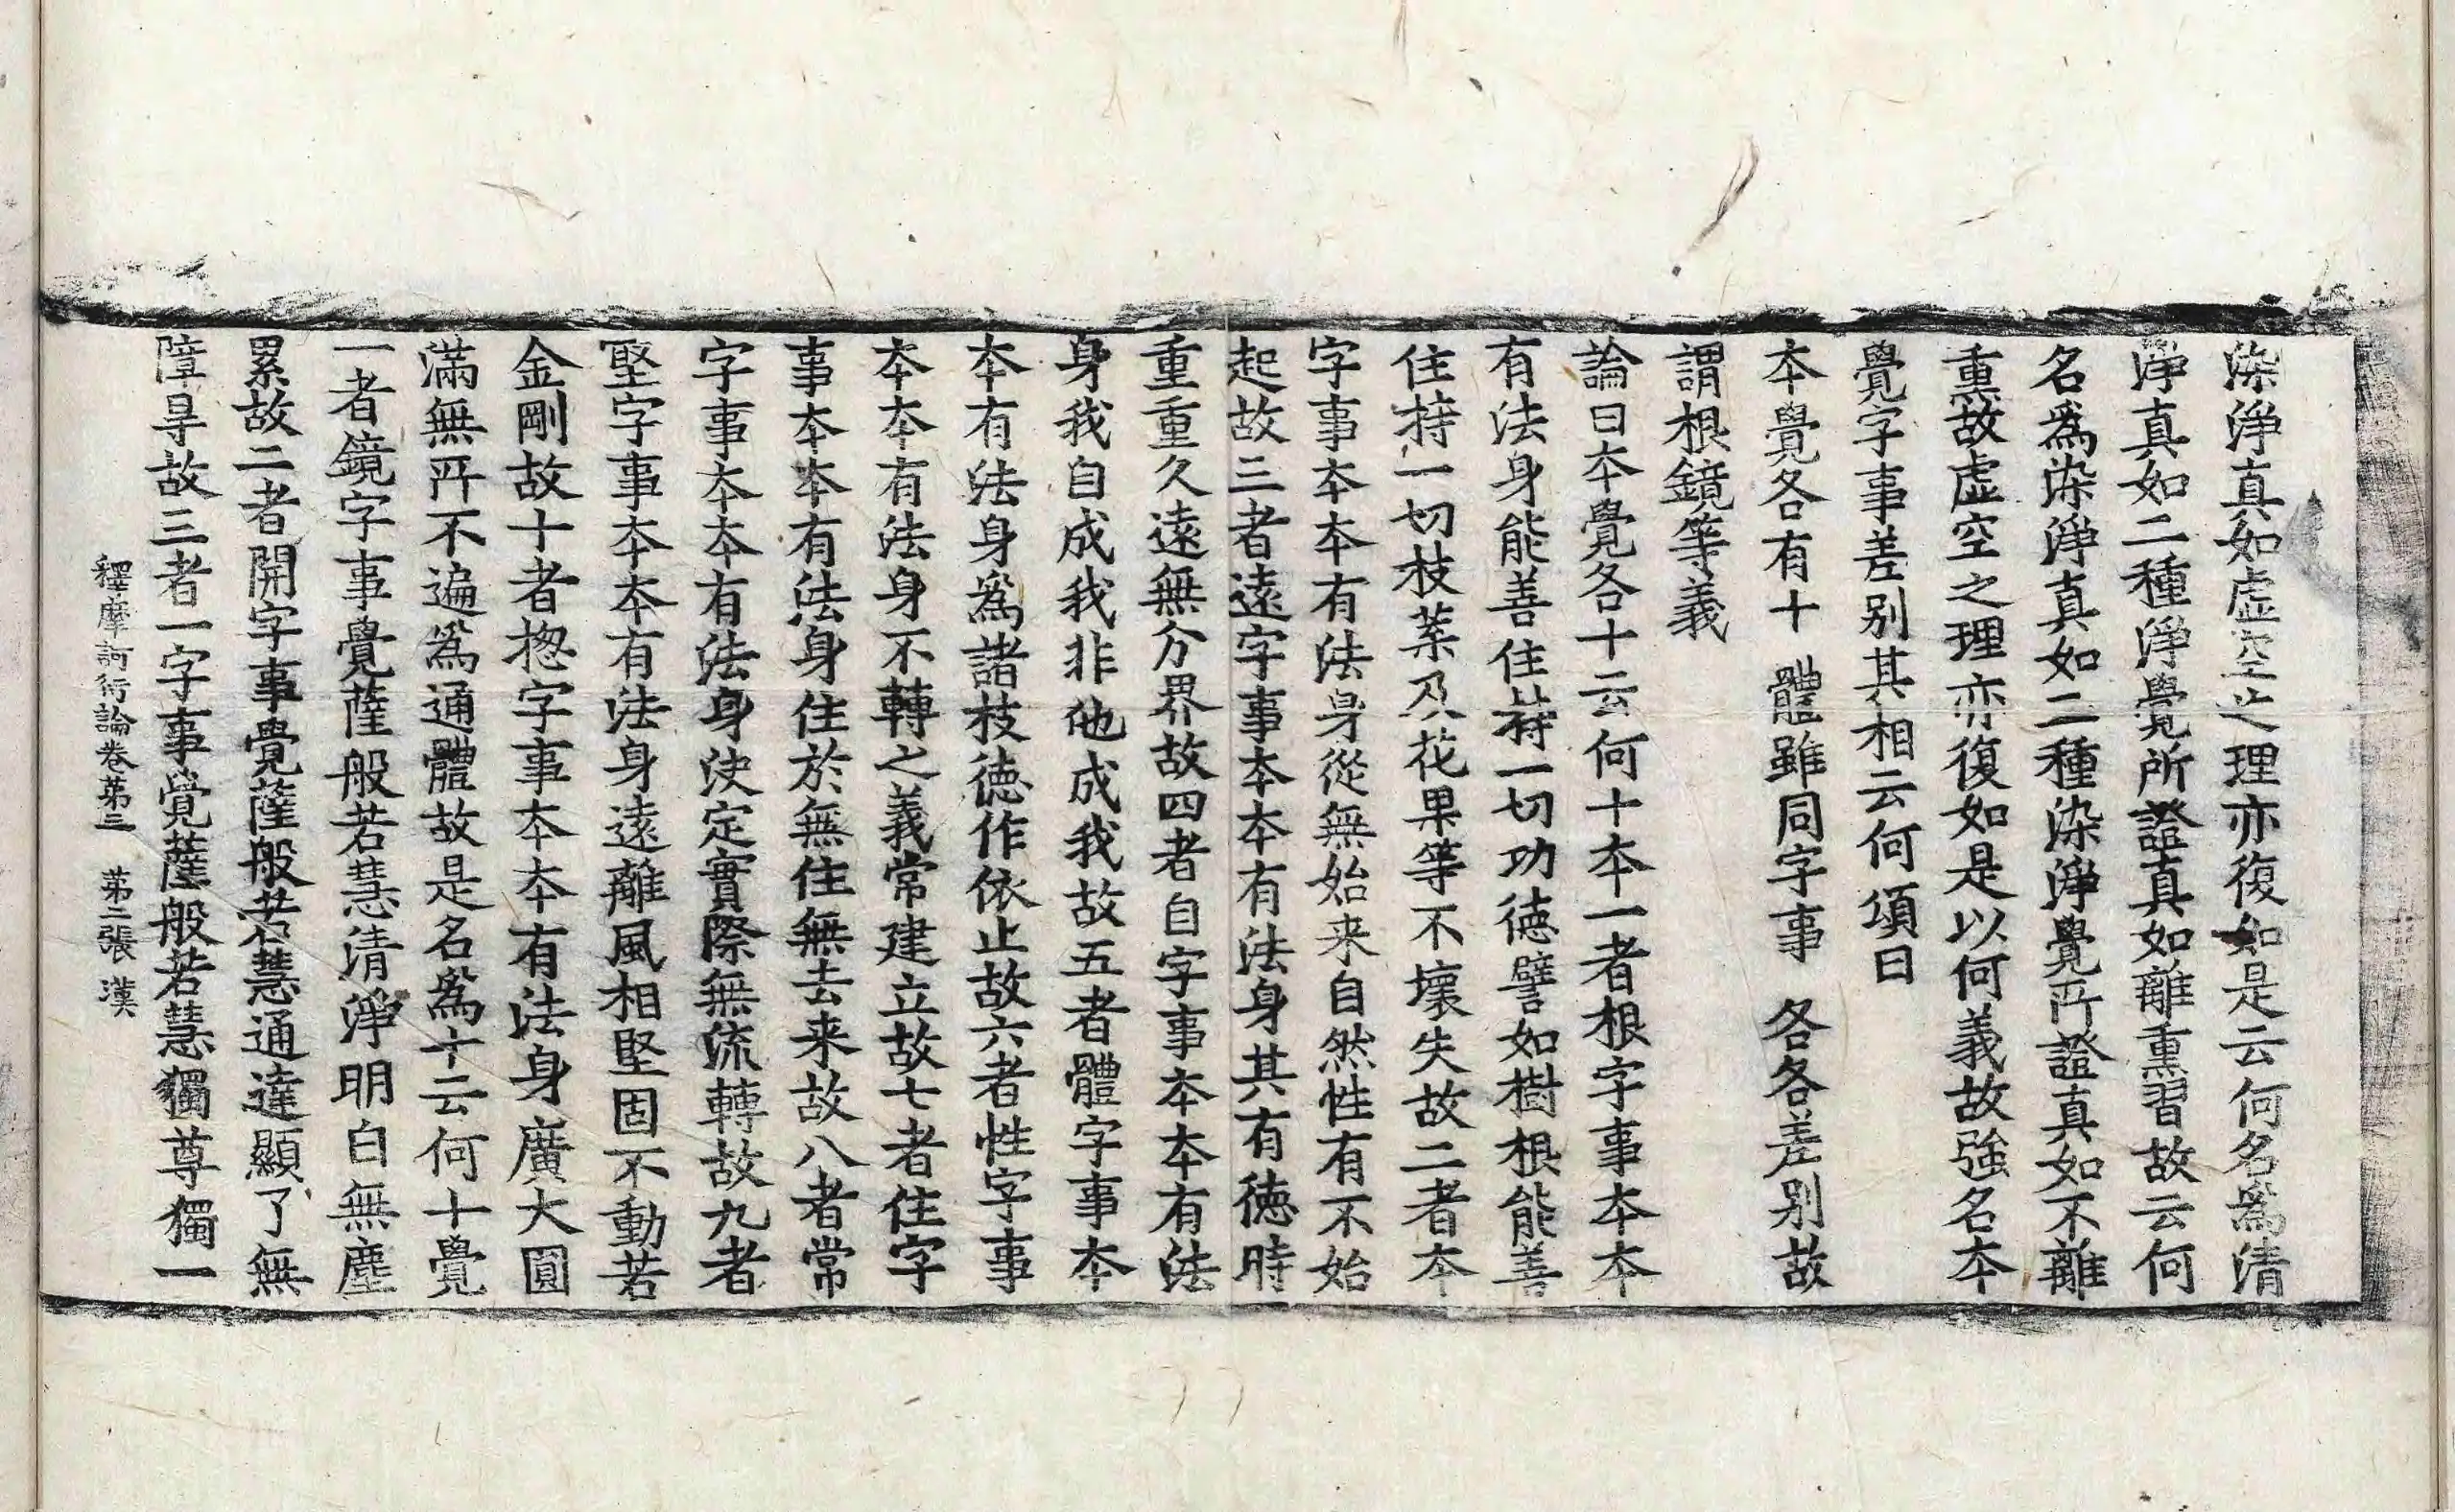 染淨真如虛空之理亦復如是云何名爲清
淨真如二種淨覺所證真如離熏習故云何
名爲染淨真如二種染淨覺所證真如不離
熏故虛空之理亦復如是以何義故強名本
覺字事差別其相云何頌曰
本覺各有十　體雖同字事　各各差別故
謂根鏡等義
論曰本覺各十云何十本一者根字事本本
有法身能善住持一切功德譬如樹根能善
住持一切枝葉及花果等不壞失故二者本
字事本本有法身從無始来自然性有不始
起故三者遠字事本本有法身其有德時
重重久遠無分界故四者自字事本本有法
身我自成我非他成我故五者體字事本
本有法身爲諸枝德作依止故六者性字事
本本有法身不轉之義常建立故七者住字
事本本有法身住於無住無去来故八者常
字事本本有法身決定實際無流轉故九者
堅字事本本有法身遠離風相堅固不動若
金剛故十者揔字事本本有法身廣大圓
滿無所不遍爲通體故是名爲十云何十覺
一者鏡字事覺薩般若慧清淨明白無塵
累故二者開字事覺薩般若慧通達顯了無
障㝵故三者一字事覺薩般若慧獨尊獨一
釋摩訶衍論卷苐三　苐二張　漢